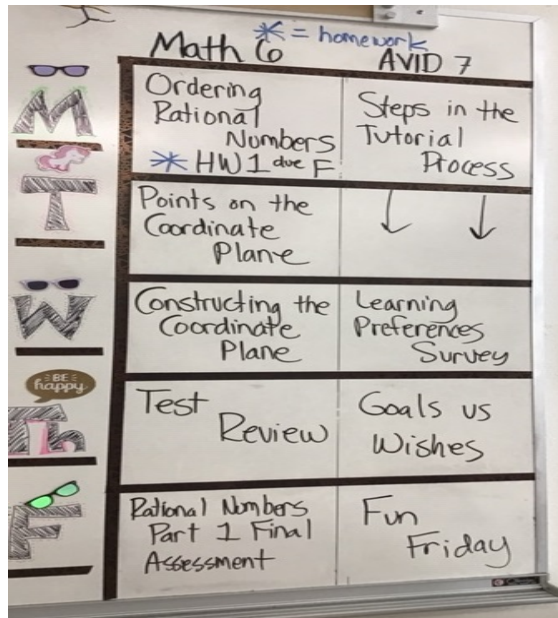 * = homework
Math 6
AVID 7
M
Ordering
Rational
Numbers
* HW1 due F
Steps in the
Tutorial
Process
T
Points on the
Coordinate
Plane
↓ ↓
W
Constructing the
Coordinate
Plane
Learning
Preferences
Survey
BE
happy
Th
Test
Review
Goals vs
Wishes
F
Rational Numbers
Part 1 Final
Assessment
Fun
Friday